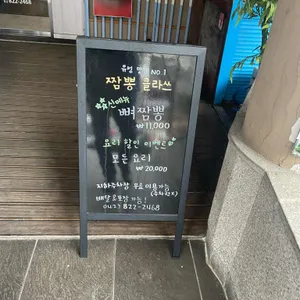 )822-2468
유성 맛집 NO.1
짬뽕 클라쓰
신메뉴
뼈짬뽕
₩11,000
요리 할인 이벤트
모든 요리
₩20,000
지하주차장 무료 이용가능
배달 & 포장 가능!
042) 822-2468